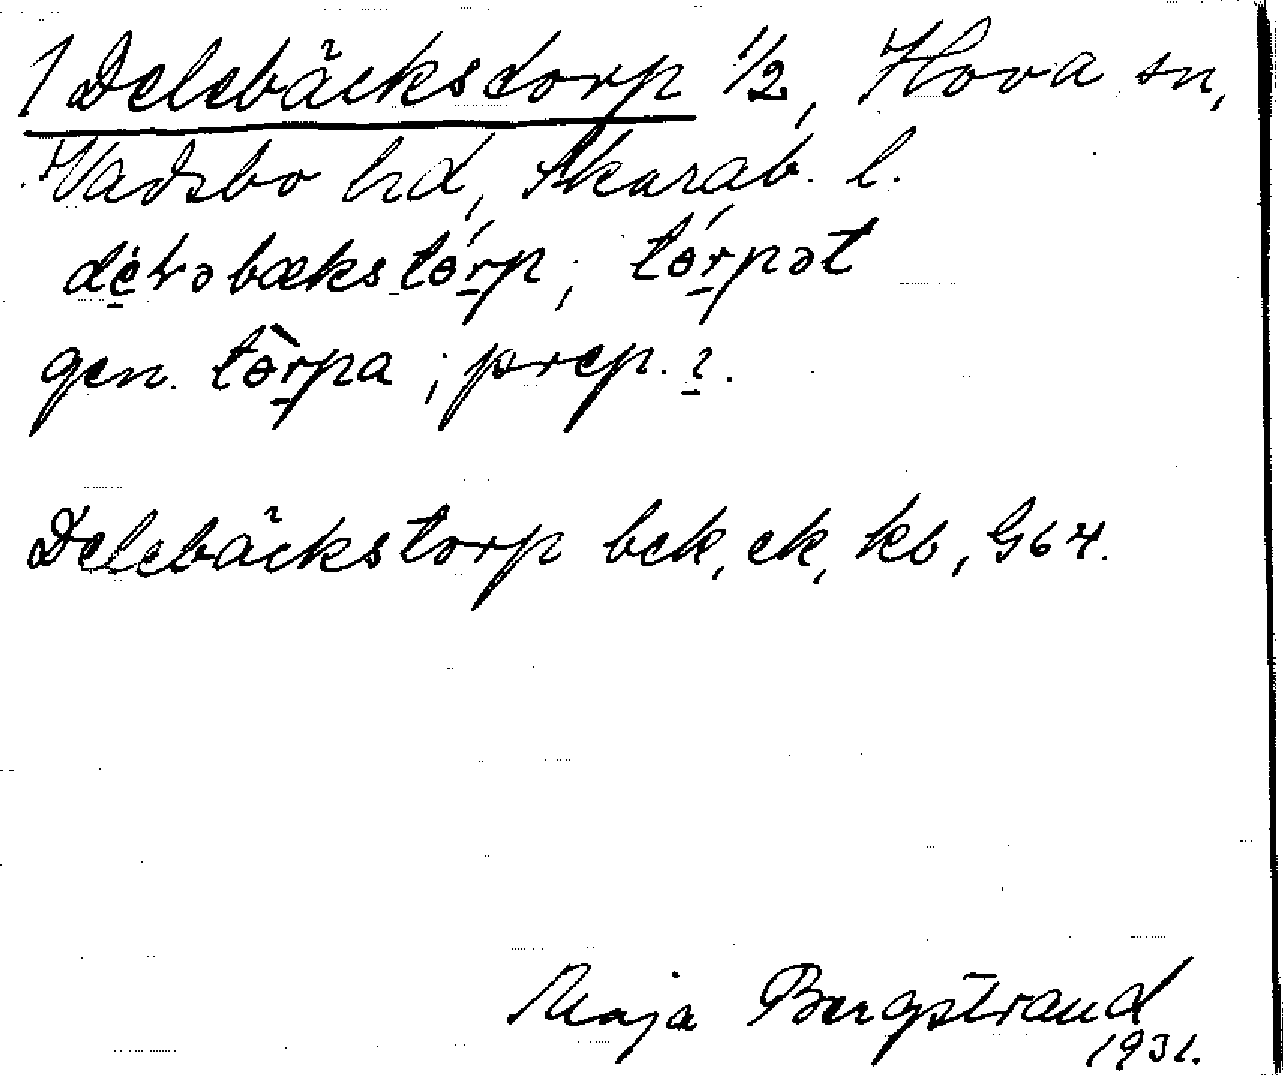 1 Delebäckstorp 1/2, Hova sn,
Vadsbo hd, Skarab. l.
dėƚəbækstɵ́rp; tɵ́rpət
gen. tɵ̀rpa; prep. ı.
Delebäckstorp bek, ek, kb, G64.
Maja Bergstrand
1931.